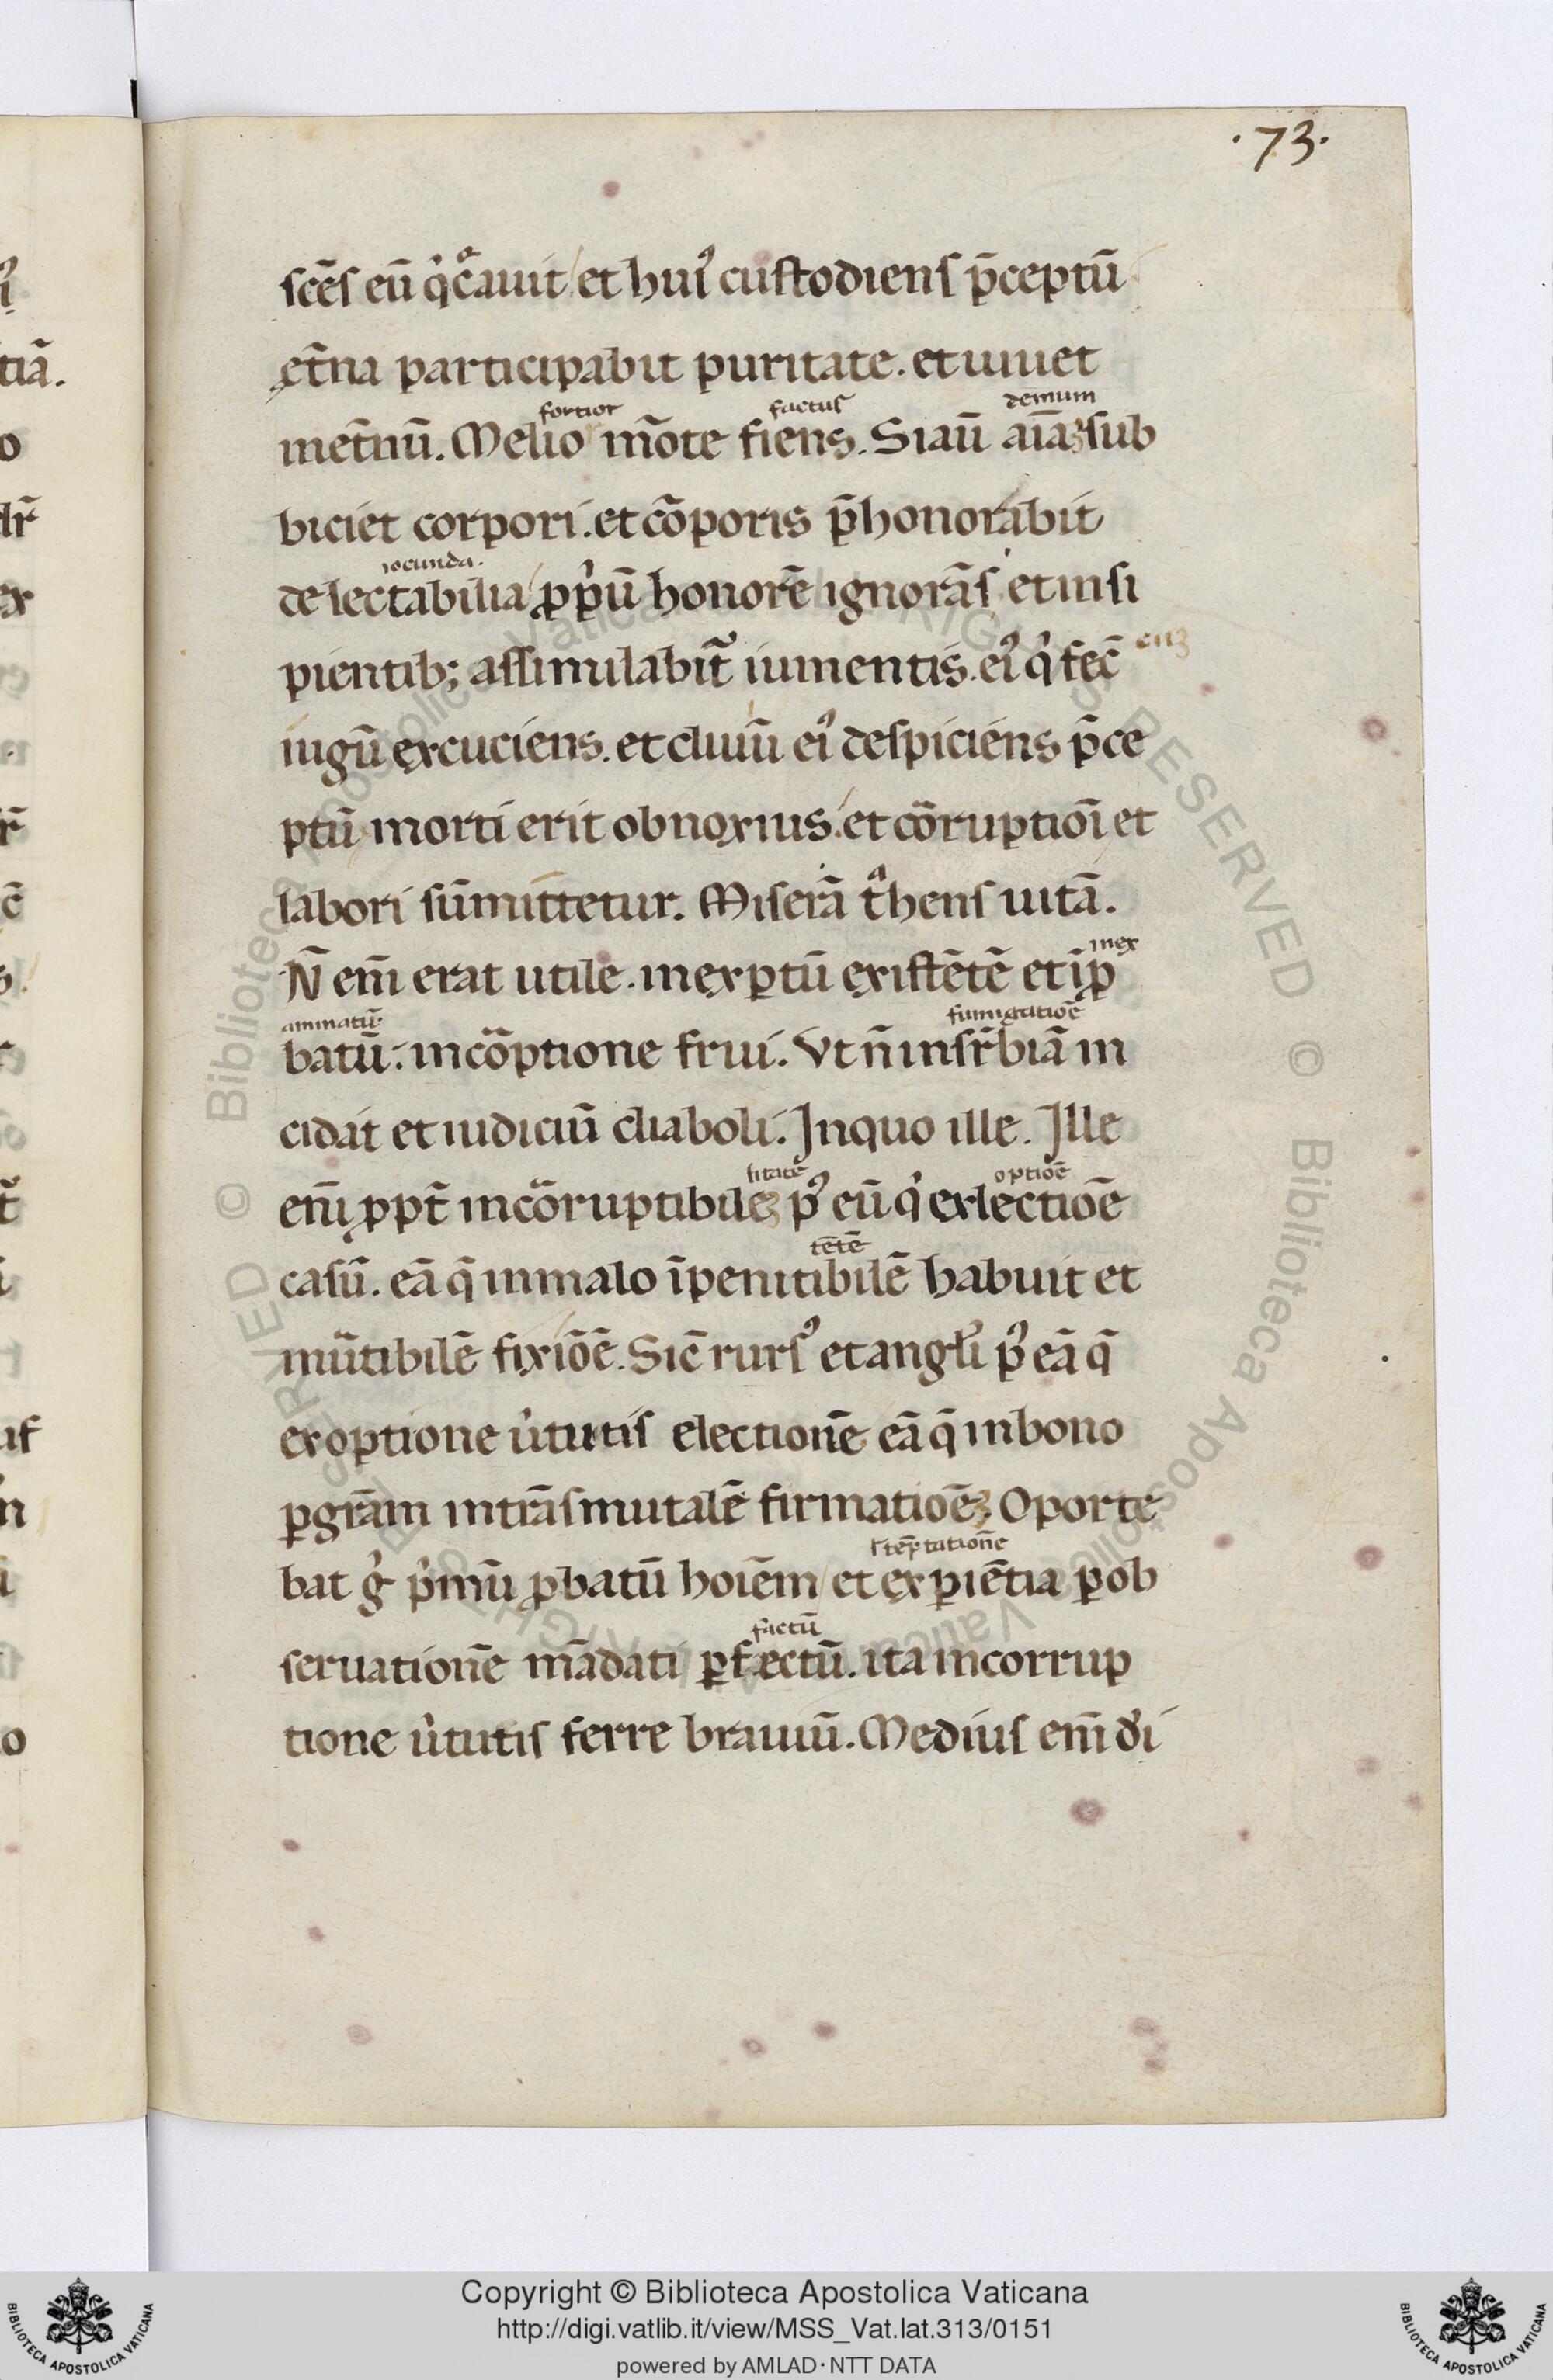 ·73·
scēs eū qͥ cͤauit et huiꝰ custodiens p̄ceptū
et̄na participabit puritate. et uiuet
fortior factus demum
inet̄nū. Melio m̄ote fiens. Siaū aīaʒ sub
biciet corpori. et cōporis p̄honorabit
iocunda.
delectabilia ꝓpͥū honorē ignorās et insi
pientibꝫ assimulabit̄ iumentis. eiꝰ qͥ fec̄
iugū excuciens. et diuiū eiꝰ despiciens p̄ce
ptū morti erit obnoxius. et cōruptiōi et
labori sūmittetur. Miserā tͣhens uitā.
inex
N̄ eī erat utile. inexꝑtū existētē et īꝓ
aminatū fumigatiōe
batū. incōptione frui. Vt n̄ insr̄biā in
cidat et iudiciū diaboli. Inquo ille. Ille
litatē optiōe
eī ꝓpt̄ incōruptibileʒ pꝰ eū qͥ exlectiōe
tētē
casū. eā q̄ inmalo īpenitibilē habuit et
mūtibilē fixiōē. Sic̄ rursꝰ et angl̓i pꝰ eā q̄
exoptione u̓tutis electionē eā q̄ inbono
ꝑgrām intrāsmutalē firmatiōeʒ. Oporte
ł tēptationē
bat gͥ pͥmū ꝓbatū hoīem et exꝑiētia ꝑob
factū
seruationē mādati ꝑfectū. ita incorrup
tione u̓tutis ferre brauiū. Medius eī di
Copyright © Biblioteca Apostolica Vaticana
http://digi.vatlib.it/view/MSS_Vat.lat.313/0151
powered by AMLAD·NTT DATA
BIBLIOTECA APOSTOLICA VATICANA
BIBLIOTECA APOSTOLICA VATICANA